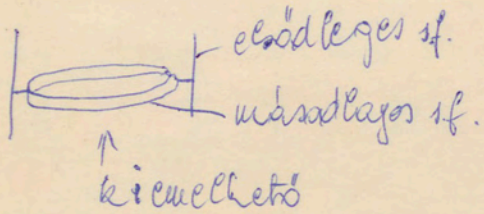 elsődleges sf.
másodlagos sf.
kiemelhető